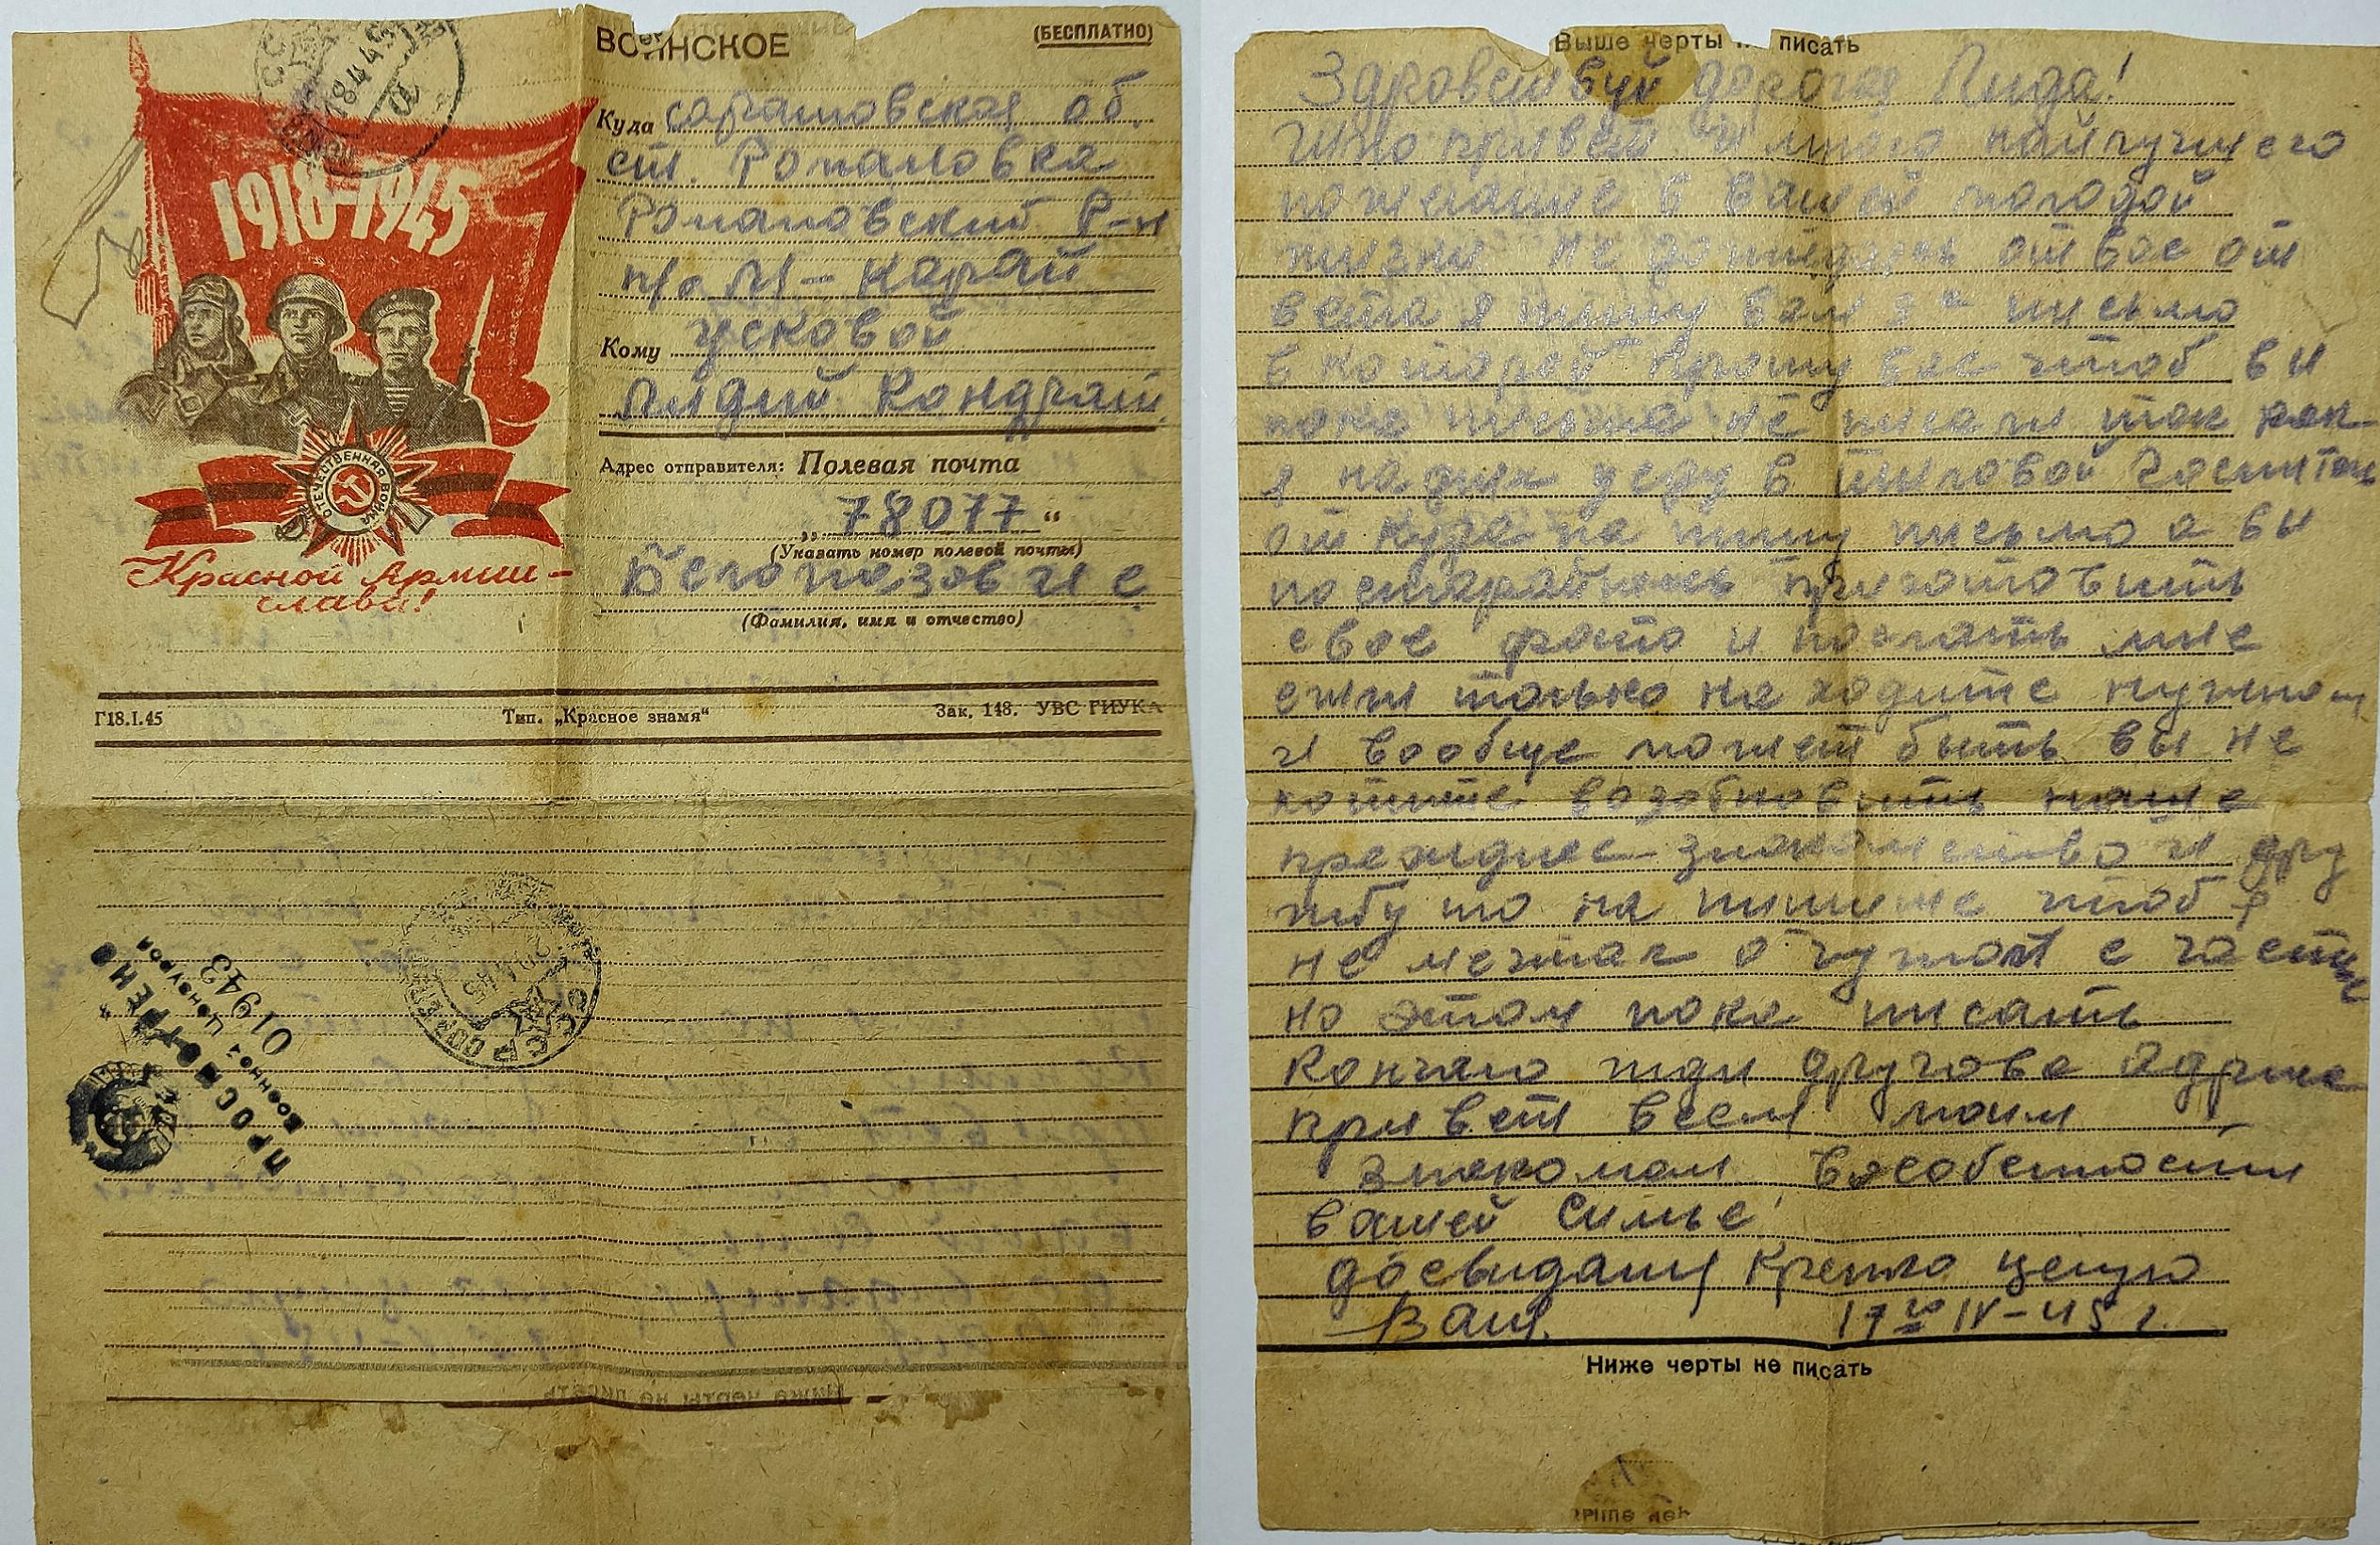 ВОИНСКОЕ
(БЕСПЛАТНО)
1918-1945
Красной Армии-
слава!
ОТЕЧЕСТВЕННАЯ ВОЙНА
Куда саратовская об.
ст. Романовка
Романовский Р-н
п/о М-Карай
Кому Усковой
Лидий Кондрат.
Адрес отправителя: Полевая почта
„78077“
(Указать номер полевой почты)
(Фамилия, имя и отчество)
Г18.I.45
Тип. „Красное знамя“
Зак. 148. УВС ГИУКА
ПРОСМОТРЕНО
Военной Цензурой
01943
Выше черты не писать
Здровствуй дорогая Лида!
привет и много найлучшего
пожелание в вашей молодой
жизни не дождаясь от вас от
вета я пишу вам 2е письмо
в которой прошу вас чтоб вы
пока письма не писали так как
я на днях уеду в
от куда на пишу письмо а вы
постарайтесь приготовить
свое фото и послать мне
ежли только на ходите нужном
и вообще может быть вы не
хотите возобновить наше
прежднее знакомство и дру
жбу то на пишите чтоб я
не мечтал о чужом счастье
но этом пока писать
кончаю жди другова Адриса
привет всем моим
знакомым вособенности
вашей Симье
досвидания Крепко целую
Ваш. 17го IV-45 г.
Ниже черты не писать